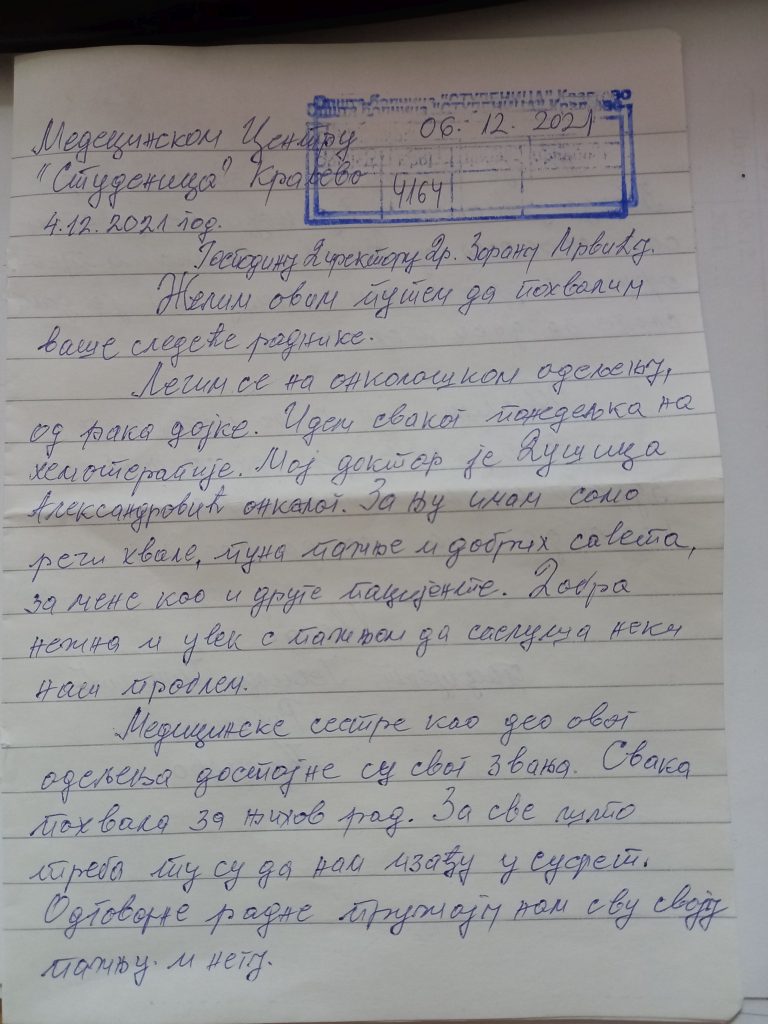 Општа болница "СТУДЕНИЦА" Краљево
06. 12. 2021
Медецинском Центру
"Студеница" Краљево
4164
4.12.2021 год.
Господину Директору Др. Зорану Мрвићу.
Желим овим путем да похвалим
ваше следеће раднике.
Лечим се на онколошком одељењу,
од рака дојке. Идем сваког понедељка на
хемотерапије. Мој доктор је Душица
Александровић онколог. За њу имам само
речи хвале, пуна пажње и добрих савета,
за мене као и друге пацијенте. Добра
нежна и увек с пажњом да саслуша неки
наш проблем.
Медицинске сестре као део овог
одељења достојне су свог звања. Свака
похвала за њихов рад. За све што
треба ту су да нам изађу у сусрет.
Одговорне радне пружају нам сву своју
пажњу. и негу.